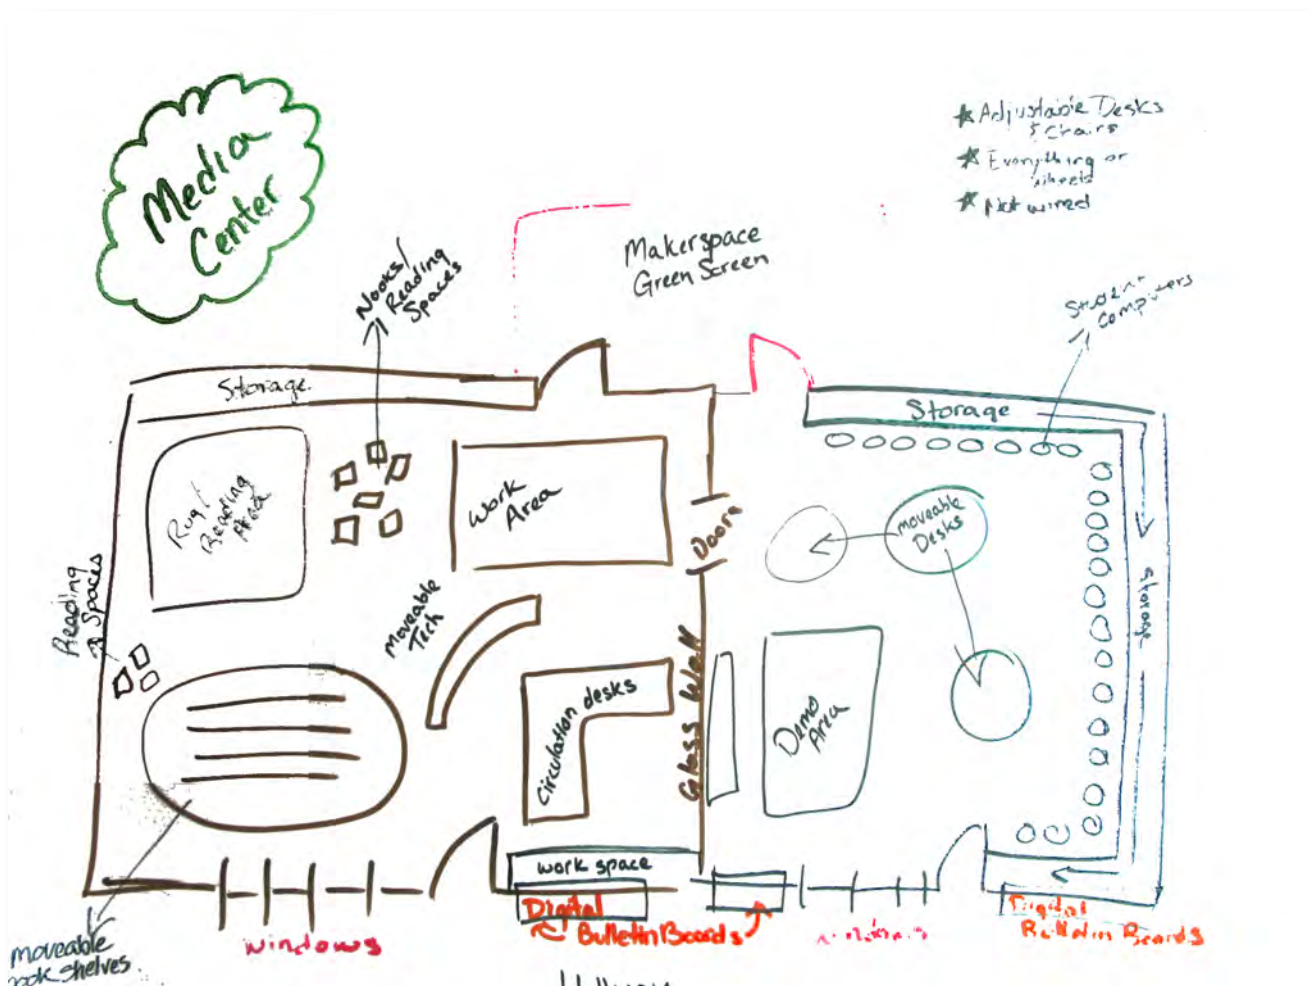 Media
Center
★ Adjustable Desks
& Chairs
★ Everything on
wheels
★ Not wired
Makerspace
Green Screen
Nooks/
Reading
Spaces
Student
Computers
Storage
Storage
Rug/
Reading
Area
Work
Area
Doors
moveable
Desks
Storage
Reading
Spaces
Moveable
Tech
Circulation desks
Glass Wall
Demo
Area
work space
Digital
Bulletin Boards
windows
Digital
Bulletin Boards
moveable
book shelves